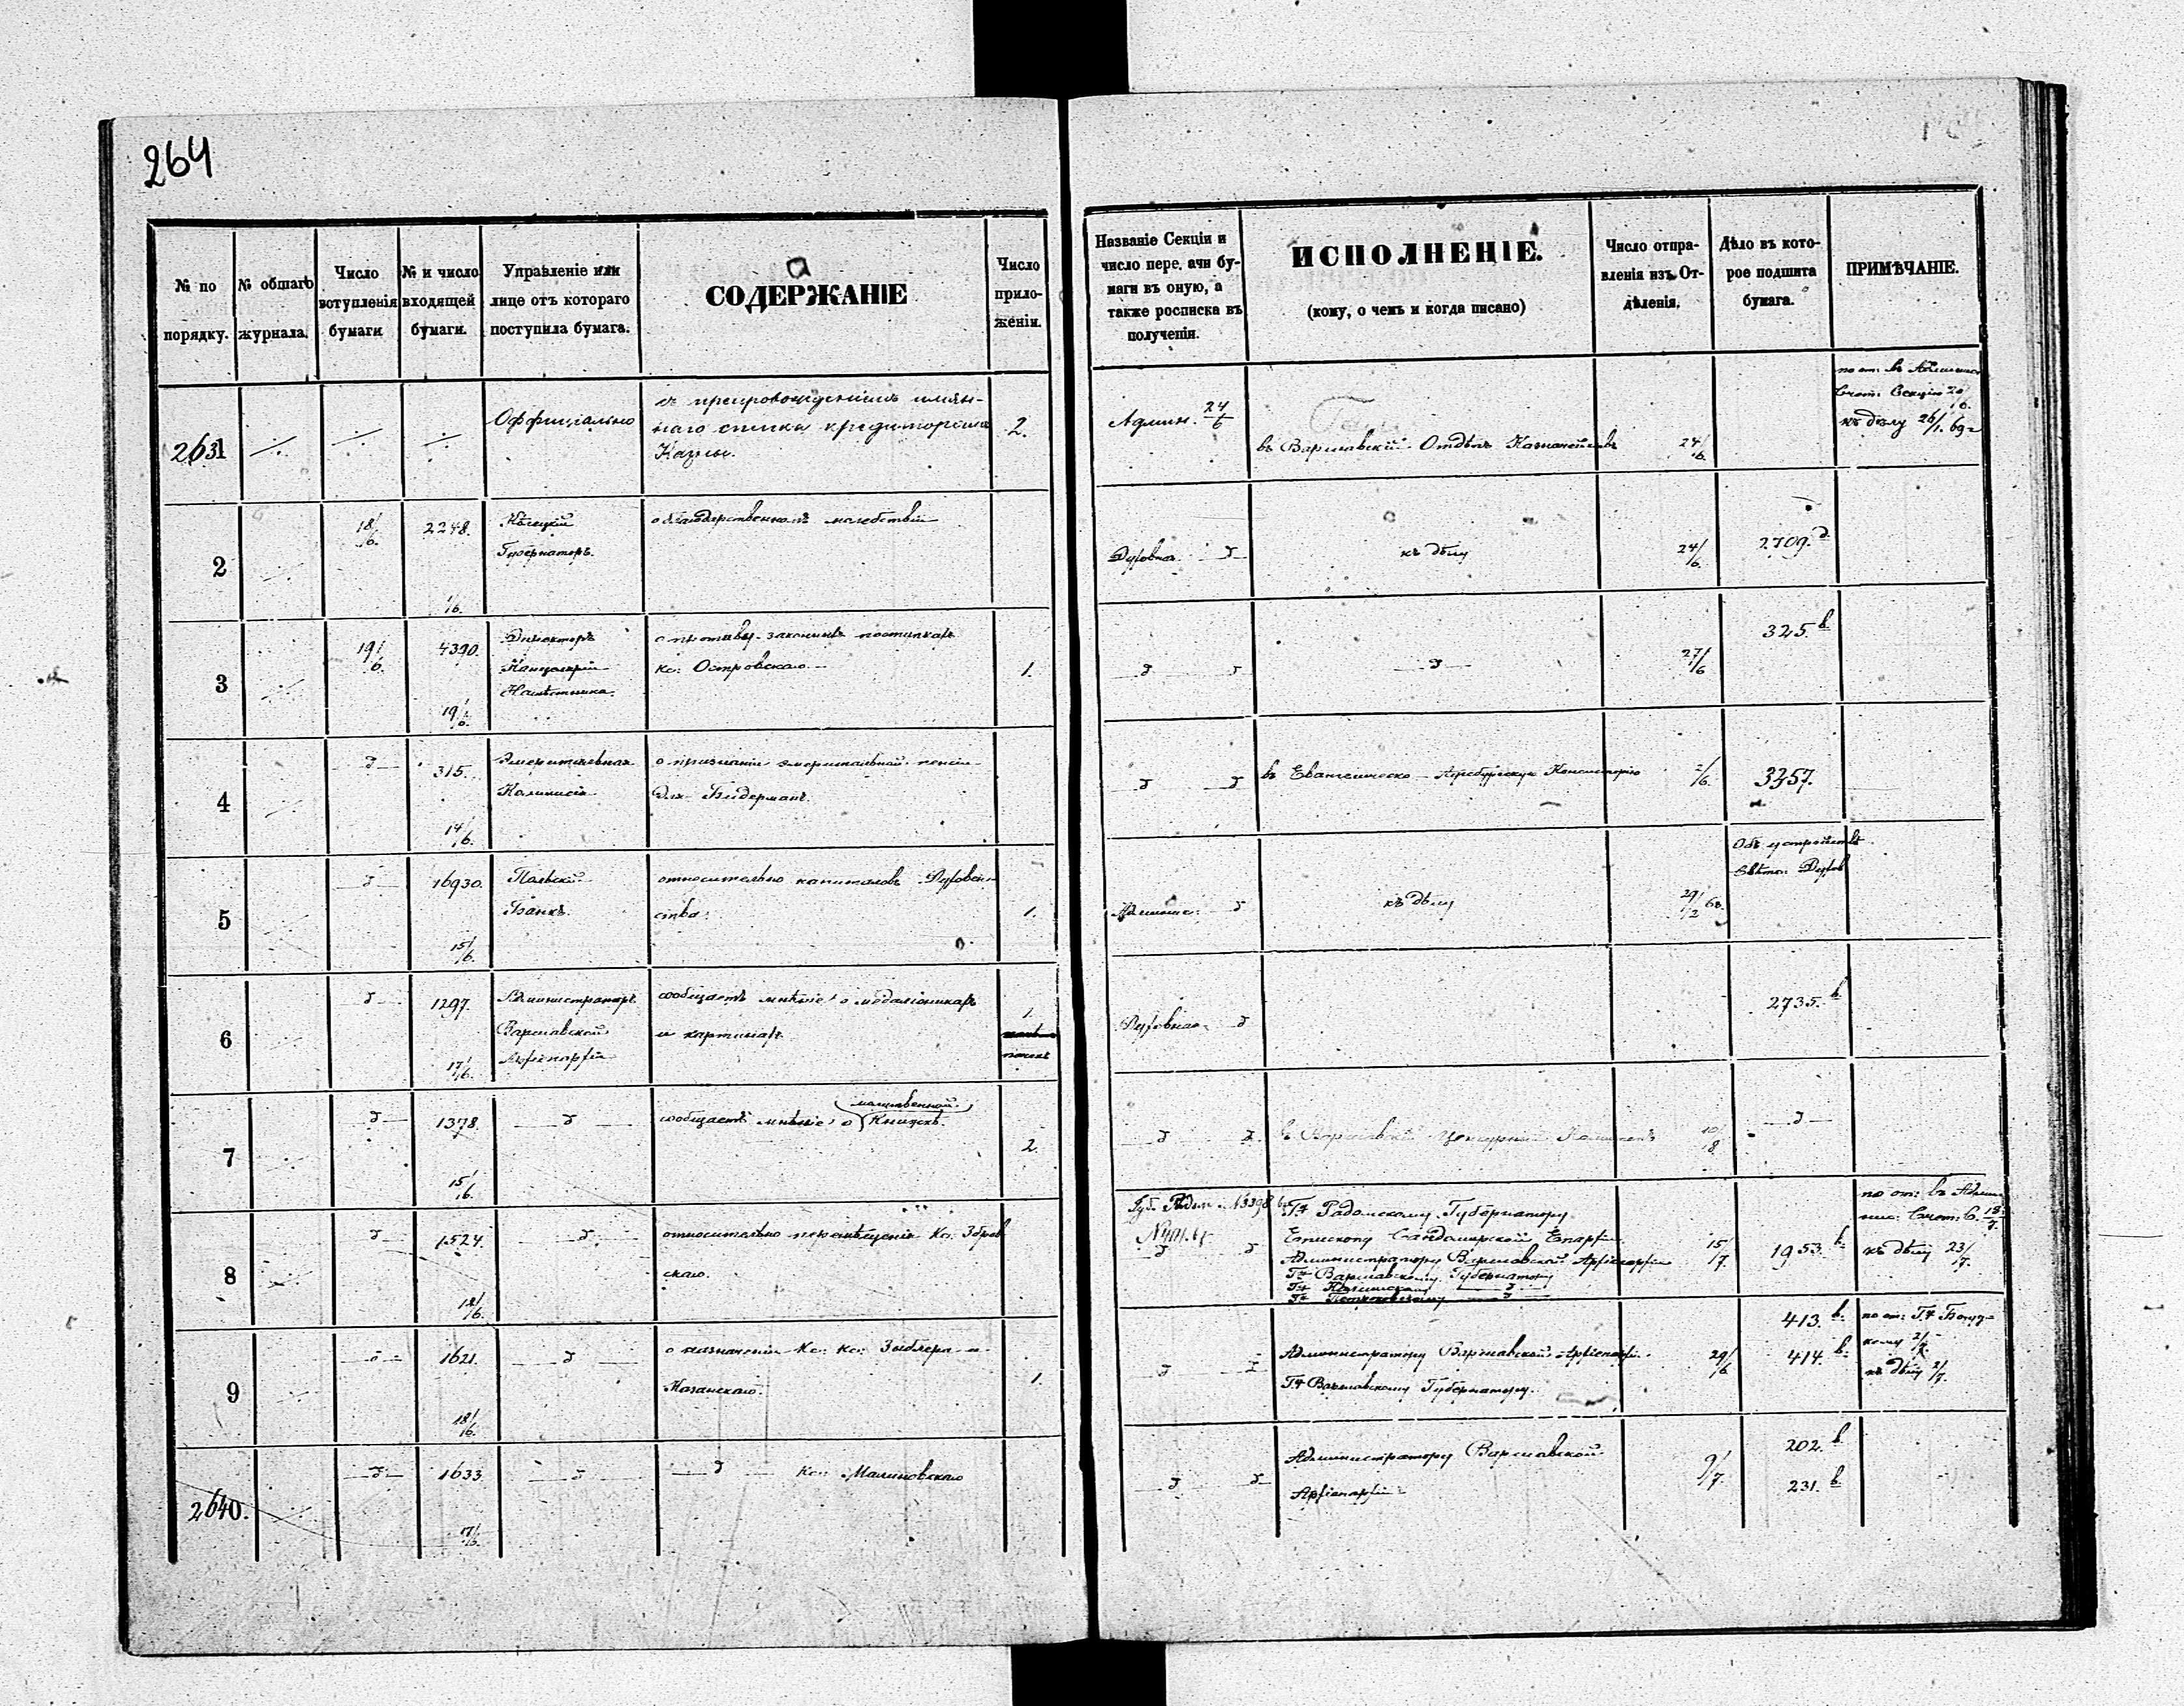 264
№ по
порядку.
№ общаго
журнала.
Число
вступленія
бумаги
№ и число
входящей
бумаги.
Управленіе или
лице отъ котораго
поступила бумага.
СОДЕРЖАНІЕ
Число
прило-
женіи.
Названіе Секціи и
число пере. ачи бу-
маги въ оную, а
также росписка въ
полученіи.
ИСПОЛНЕНІЕ.
(кому, о чемъ и когда писано)
Число отпра-
вленія изъ От-
дѣленія.
Дѣло въ кото-
рое подшита
бумага.
ПРИМѢЧАНІЕ.
2631
Оффиціально
съ препровожденіемъ имян-
наго списка кредиторовъ
Казны.
2.
Админ. 24/6
въ Варшавскій Отдѣлъ Казначейства
24/6.
по от: въ
Счет: Секцію 20/6.
къ дѣлу 26/1. 69 г
2
18/6.
2248.
1/6.
Кѣлецкій
Губернаторъ.
о благодарственномъ молебствіи
Духовная д
къ дѣлу
24/6.
2709. д
3
19/6.
4390.
19/6.
Директоръ
Канцеляріи
Намѣстника.
о противу-законныхъ поступкахъ
кс: Островскаго.
1.
д д
д
27/6
325. в
4
д
315.
14/6.
Эмеритальная
Коммисія
о признаніи эмеритальной пенсіи
для Бидерманъ.
д д
въ Евангелическо-Аугсбургскую Консисторію
/6.
3257.
5
д
16930.
15/6.
Польскій
Банкъ.
относительно капиталовъ Духовен-
ства.
1.
Админис: д
къ дѣлу
29/12 68.
Объ устройствѣ
Свѣтск: Духов
6
д
1297.
17/6.
Администраторъ
Варшавской
Архіепархіи
сообщаетъ мнѣніе о медаліоникахъ
и картинахъ.
1.
пачекъ
Духовная д
2735. в
7
д
1378.
15/6.
д
сообщаетъ мнѣніе о молитвенной
Книжкѣ.
2.
д д.
въ Варшавскій Цензурный Комитетъ
10/8
д
8
д
1524.
12/6.
д.
относительно перемѣщенія Кс. Збров
скаго.
Губ. Радом.
д д
Г-ну Радомскому Губернатору
Епископу Сандомирской Епархіи
Администратору Варшавской Архіепархіи
Г-ну Варшавскому Губернатору
Г-ну Калишскому д
Г-ну Петроковскому д
15/7.
1953. в
по от: въ Админ
нис: Счет: С. 18/7.
къ дѣлу 23/7.
9
д
1621.
18/6.
д
о назначеніи Кс: Кс: Зыблера и
Казанскаго.
1.
д д
Администратору Варшавской Архіепархіи.
Г-ну Варшавскому Губернатору.
29/6
413. в.
414. в.
по от: Г-ну
кому 2/7.
къ дѣлу 2/7.
2640.
д
1633
7/6.
д
д Кс: Малиновскаго
д д
Администратору Варшавской
Архіепархіи
9/7.
202. в
231. в